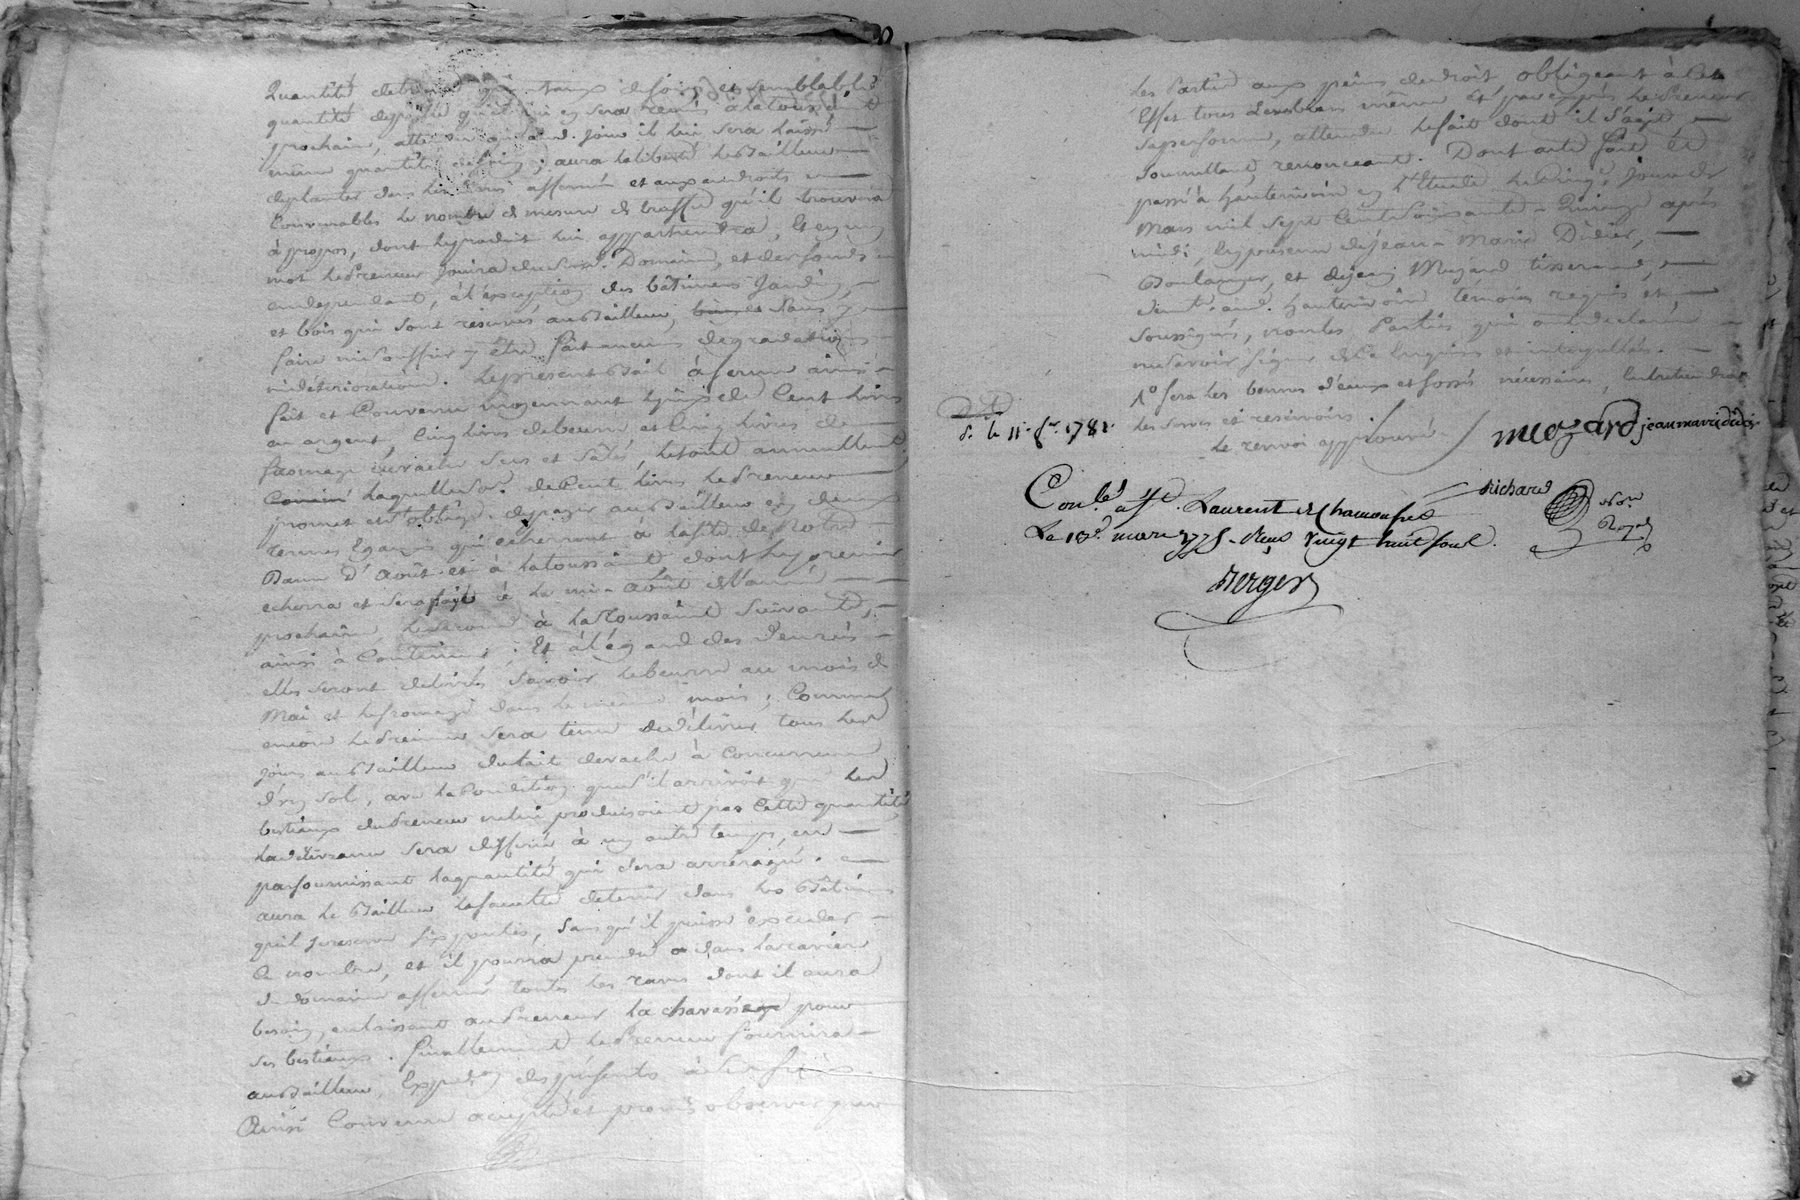 quantité de foin et semblable
quantité de paille qu'il lui sera remis à la toussaint
prochain, attendu foin il lui sera laissé
même quantité de foin; aura la liberté le Bailleur
de planter dans les affermés et aux endroits
Convenables le nombre de mesure de qu'il trouvera
à propos, dont le produit lui appartiendra, Et en un
mot le Preneur Jouira dud. Domaine, et des fonds en
endependant, à l'exception des bâtiments Jardin,
et bois qui sont réservés au Bailleur, Sans y
faire ni souffrir y être fait aucune degradation
ni déterioration. Le present Bail à ferme ainsi
fait et Convenu moyennant le prix de Cent livres
en argent, Cinq livres de beurre et Cinq livres de
fromage de vache secs et salés, le tout annuellement
laquelle so.e de Cent livres le Preneur
promet et s'oblige de payer au Bailleur en deux
termes Egaux qui echerront à la fête de Notre
Dame D'Août et à la toussaint, dont le premier
echerra et sera payé à la mi-Août de l'année
prochaine, le second à la Toussaint Suivante,
ainsi à Continuer; Et à l'égard des denrées
elles seront delivrées Savoir le beurre au mois de
Mai et le fromage dans le même mois; Comme
encore le Preneur sera tenu de délivrer tous les
jours au Bailleur du lait de vache à Concurrence
d'un sol, avec la Condition que s'il arrivoit que les
bestiaux du Preneur ne lui produisoient pas Cette quantité
la délivrance sera differée à un autre temps, en
parfournissant la quantité qui sera arréragée.
aura le Bailleur la faculté de tenir dans les Bâtimens
qu'il se reserve six poules, sans qu'il puisse exceder
Ce nombre, et il pourra prendre dans la ravière
du domaine affermé toutes les raves dont il aura
besoin, en laissant au Preneur la pour
ses bestiaux. finallement le Preneur fournira
au Bailleur, Expedon des présentes à ses frais
Ainsi Convenu accepté et promis observer par
les Parties aux peines de droit obligeant à Cet
Effet tous Leurs biens même et par exprès le Preneur
sa personne, attendu le fait dont il s'agit
soumettant, renonceant. Dont acte fait et
passé à hauterivoire en l'Etude le Jour de
Mars mil sept Cent soixante-Quinze après
midi, En presence de jean-Marie Didier,
Boulanger, et de jean Mezard tisserand,
dud. hauterivoire témoins requis et
soussignés, non les Parties qui ont declaré
ne savoir signer de Ce Enquises et interpellées.
1° fera les bonnes d'eaux et fossés nécessaires, Entretiendra
les serves et reservoirs.
le renvoi approuvé
mezard jeanmarie didier
d. le 11 8.r 1781.
Richard
No.re Royal
Con.lé à St Laurent de Chamousset
Le mars 1775 Reçu vingt huit sols.
Berger